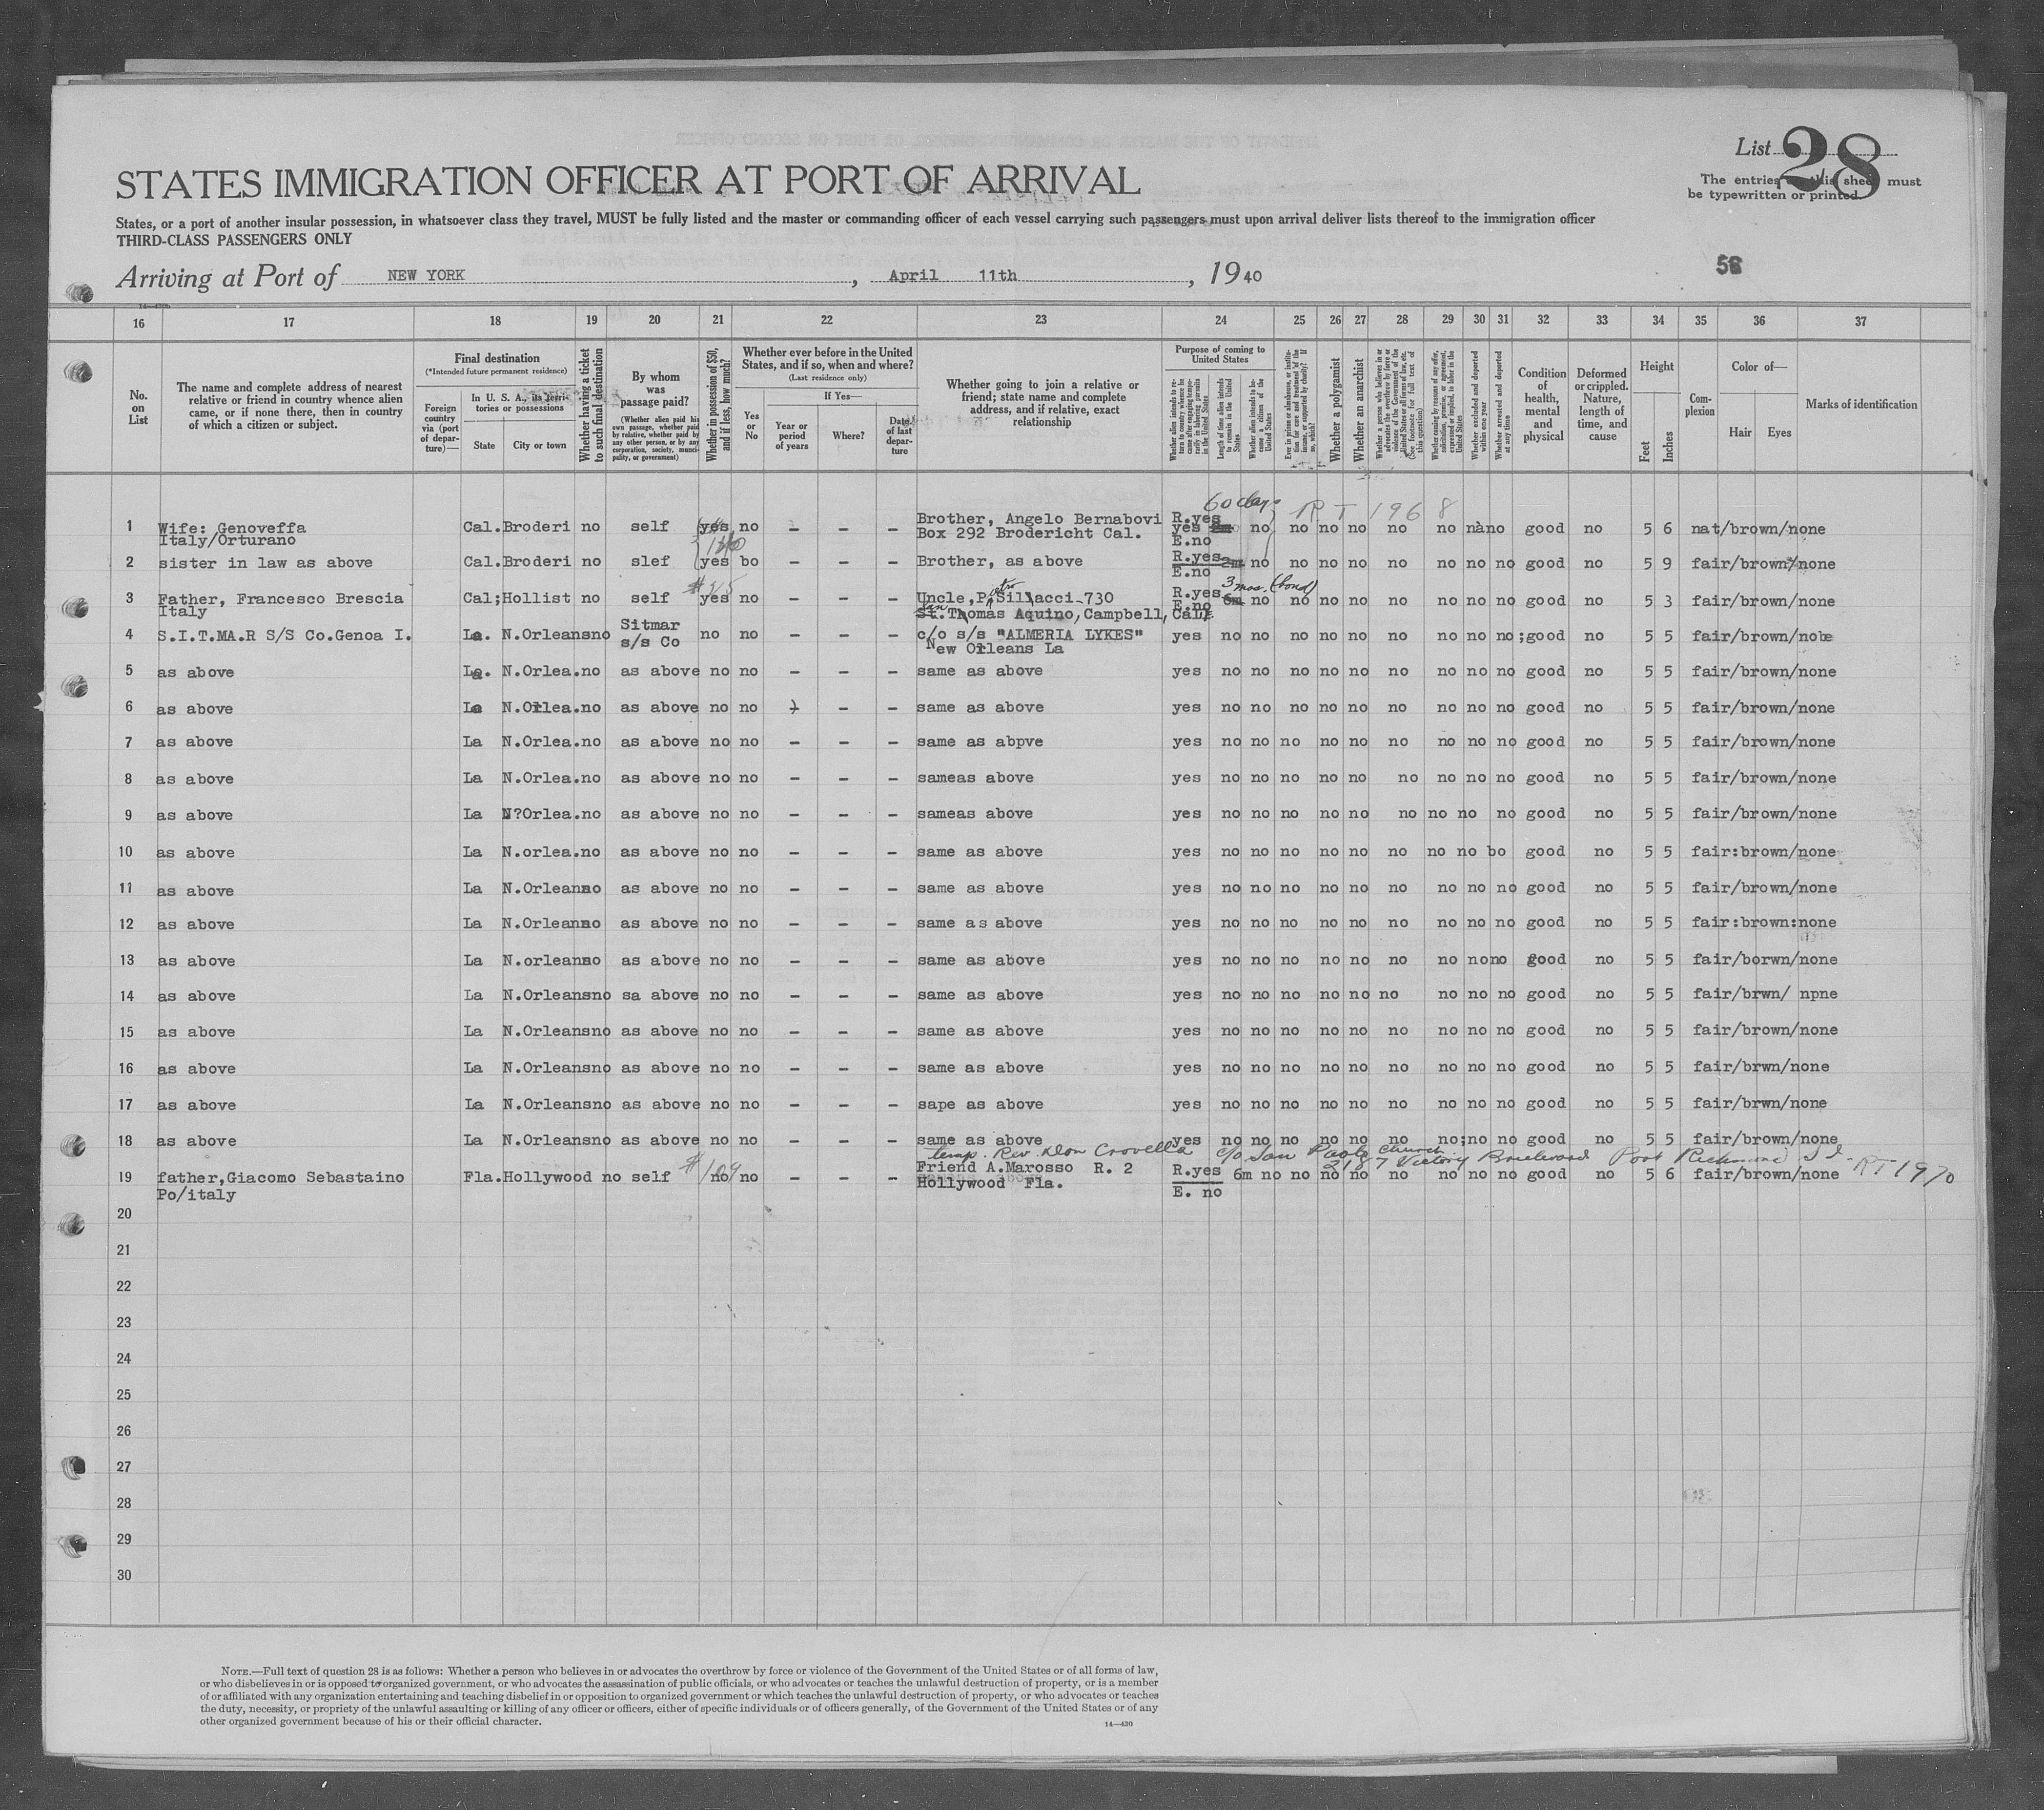 List 28
The entries on this sheet must
be typewritten or printed.
STATES IMMIGRATION OFFICER AT PORT OF ARRIVAL
States, or a port of another insular possession, in whatsoever class they travel, MUST be fully listed and the master or commanding officer of each vessel carrying such passengers must upon arrival deliver lists thereof to the immigration officer
THIRD-CLASS PASSENGERS ONLY
Arriving at Port of NEW YORK , April 11th , 1940
16 17 18 19 20 21 22 23 24 25 26 27 28 29 30 31 32 33 34 35 36 37
No. on List
The name and complete address of nearest relative or friend in country whence alien came, or if none there, then in country of which a citizen or subject.
Final destination
(*Intended future permanent residence)
Foreign country via (port of departure)—
In U. S. A., its territories or possessions
State City or town
Whether having a ticket to such final destination
By whom was passage paid?
(Whether alien paid his own passage, whether paid by relative, whether paid by any other person, or by any corporation, society, municipality, or government)
Whether in possession of $50, and if less, how much?
Whether ever before in the United States, and if so, when and where?
(Last residence only)
Yes or No
If Yes—
Year or period of years
Where?
Date of last departure
Whether going to join a relative or friend; state name and complete address, and if relative, exact relationship
Purpose of coming to United States
Length of time alien intends to remain in the United States
Whether alien intends to become a citizen of the United States
Whether a polygamist
Whether an anarchist
Whether excluded and deported within one year
Whether arrested and deported at any time
Condition of health, mental and physical
Deformed or crippled. Nature, length of time, and cause
Height
Feet Inches
Complexion
Color of—
Hair Eyes
Marks of identification
60 days RT 1968
1 Wife: Genoveffa Cal. Broderi no self yes no - - - Brother, Angelo Bernabovi R.yes yes no no no no no no nàno good no 5 6 nat/brown/none
Italy/Orturano Box 292 Brodericht Cal. E.no
2 sister in law as above Cal. Broderi no slef yes bo - - - Brother, as above R.yes 2m no no no no no no no no good no 5 9 fair/brown/none
E.no
3 mos. (bond)
3 Father, Francesco Brescia Cal; Hollist no self yes no - - - Uncle, P. Sillacci 730 R.yes 6m no no no no no no no no good no 5 3 fair/brown/none
Italy St. Thomas Aquino, Campbell, Cal. E.no
4 S.I.T.MA.R S/S Co.Genoa I. La. N.Orleansno Sitmar s/s Co no no - - - c/o s/s "ALMERIA LYKES" yes no no no no no no no no no ;good no 5 5 fair/brown/nobe
New Orleans La
5 as above La. N.Orlea.no as above no no - - - same as above yes no no no no no no no no no good no 5 5 fair/brown/none
6 as above La N.Orlea.no as above no no - - - same as above yes no no no no no no no no no good no 5 5 fair/brown/none
7 as above La N.Orlea.no as above no no - - - same as abpve yes no no no no no no no no no good no 5 5 fair/brown/none
8 as above La N.Orlea.no as above no no - - - sameas above yes no no no no no no no no no good no 5 5 fair/brown/none
9 as above La N?Orlea.no as above no no - - - sameas above yes no no no no no no no no no good no 5 5 fair/brown/none
10 as above La N.orlea.no as above no no - - - same as above yes no no no no no no no no bo good no 5 5 fair:brown/none
11 as above La N.Orleanno as above no no - - - same as above yes no no no no no no no no no good no 5 5 fair/brown/none
12 as above La N.Orleanno as above no no - - - same as above yes no no no no no no no no no good no 5 5 fair:brown:none
13 as above La N.orleanno as above no no - - - same as above yes no no no no no no no nono good no 5 5 fair/borwn/none
14 as above La N.Orleansno sa above no no - - - same as above yes no no no no no no no no no good no 5 5 fair/brwn/ npne
15 as above La N.Orleansno as above no no - - - same as above yes no no no no no no no no no good no 5 5 fair/brown/none
16 as above La N.Orleansno as above no no - - - same as above yes no no no no no no no no no good no 5 5 fair/brwn/none
17 as above La N.Orleansno as above no no - - - sape as above yes no no no no no no no no no good no 5 5 fair/brwn/none
18 as above La N.Orleansno as above no no - - - same as above yes no no no no no no no;no no good no 5 5 fair/brown/none
temp. Rev. Don Crovella c/o San Paolo Church
2187 Victory Boulevard Port Richmond S I. RT 1970
19 father,Giacomo Sebastaino Fla.Hollywood no self $109 no no - - - Friend A.Marosso R. 2 R.yes 6m no no no no no no no no good no 5 6 fair/brown/none
Po/italy Hollywood Fla. E. no
20
21
22
23
24
25
26
27
28
29
30
NOTE.—Full text of question 28 is as follows: Whether a person who believes in or advocates the overthrow by force or violence of the Government of the United States or of all forms of law,
or who disbelieves in or is opposed to organized government, or who advocates the assassination of public officials, or who advocates or teaches the unlawful destruction of property, or is a member
of or affiliated with any organization entertaining and teaching disbelief in or opposition to organized government or which teaches the unlawful destruction of property, or who advocates or teaches
the duty, necessity, or propriety of the unlawful assaulting or killing of any officer or officers, either of specific individuals or of officers generally, of the Government of the United States or of any
other organized government because of his or their official character.
14—430